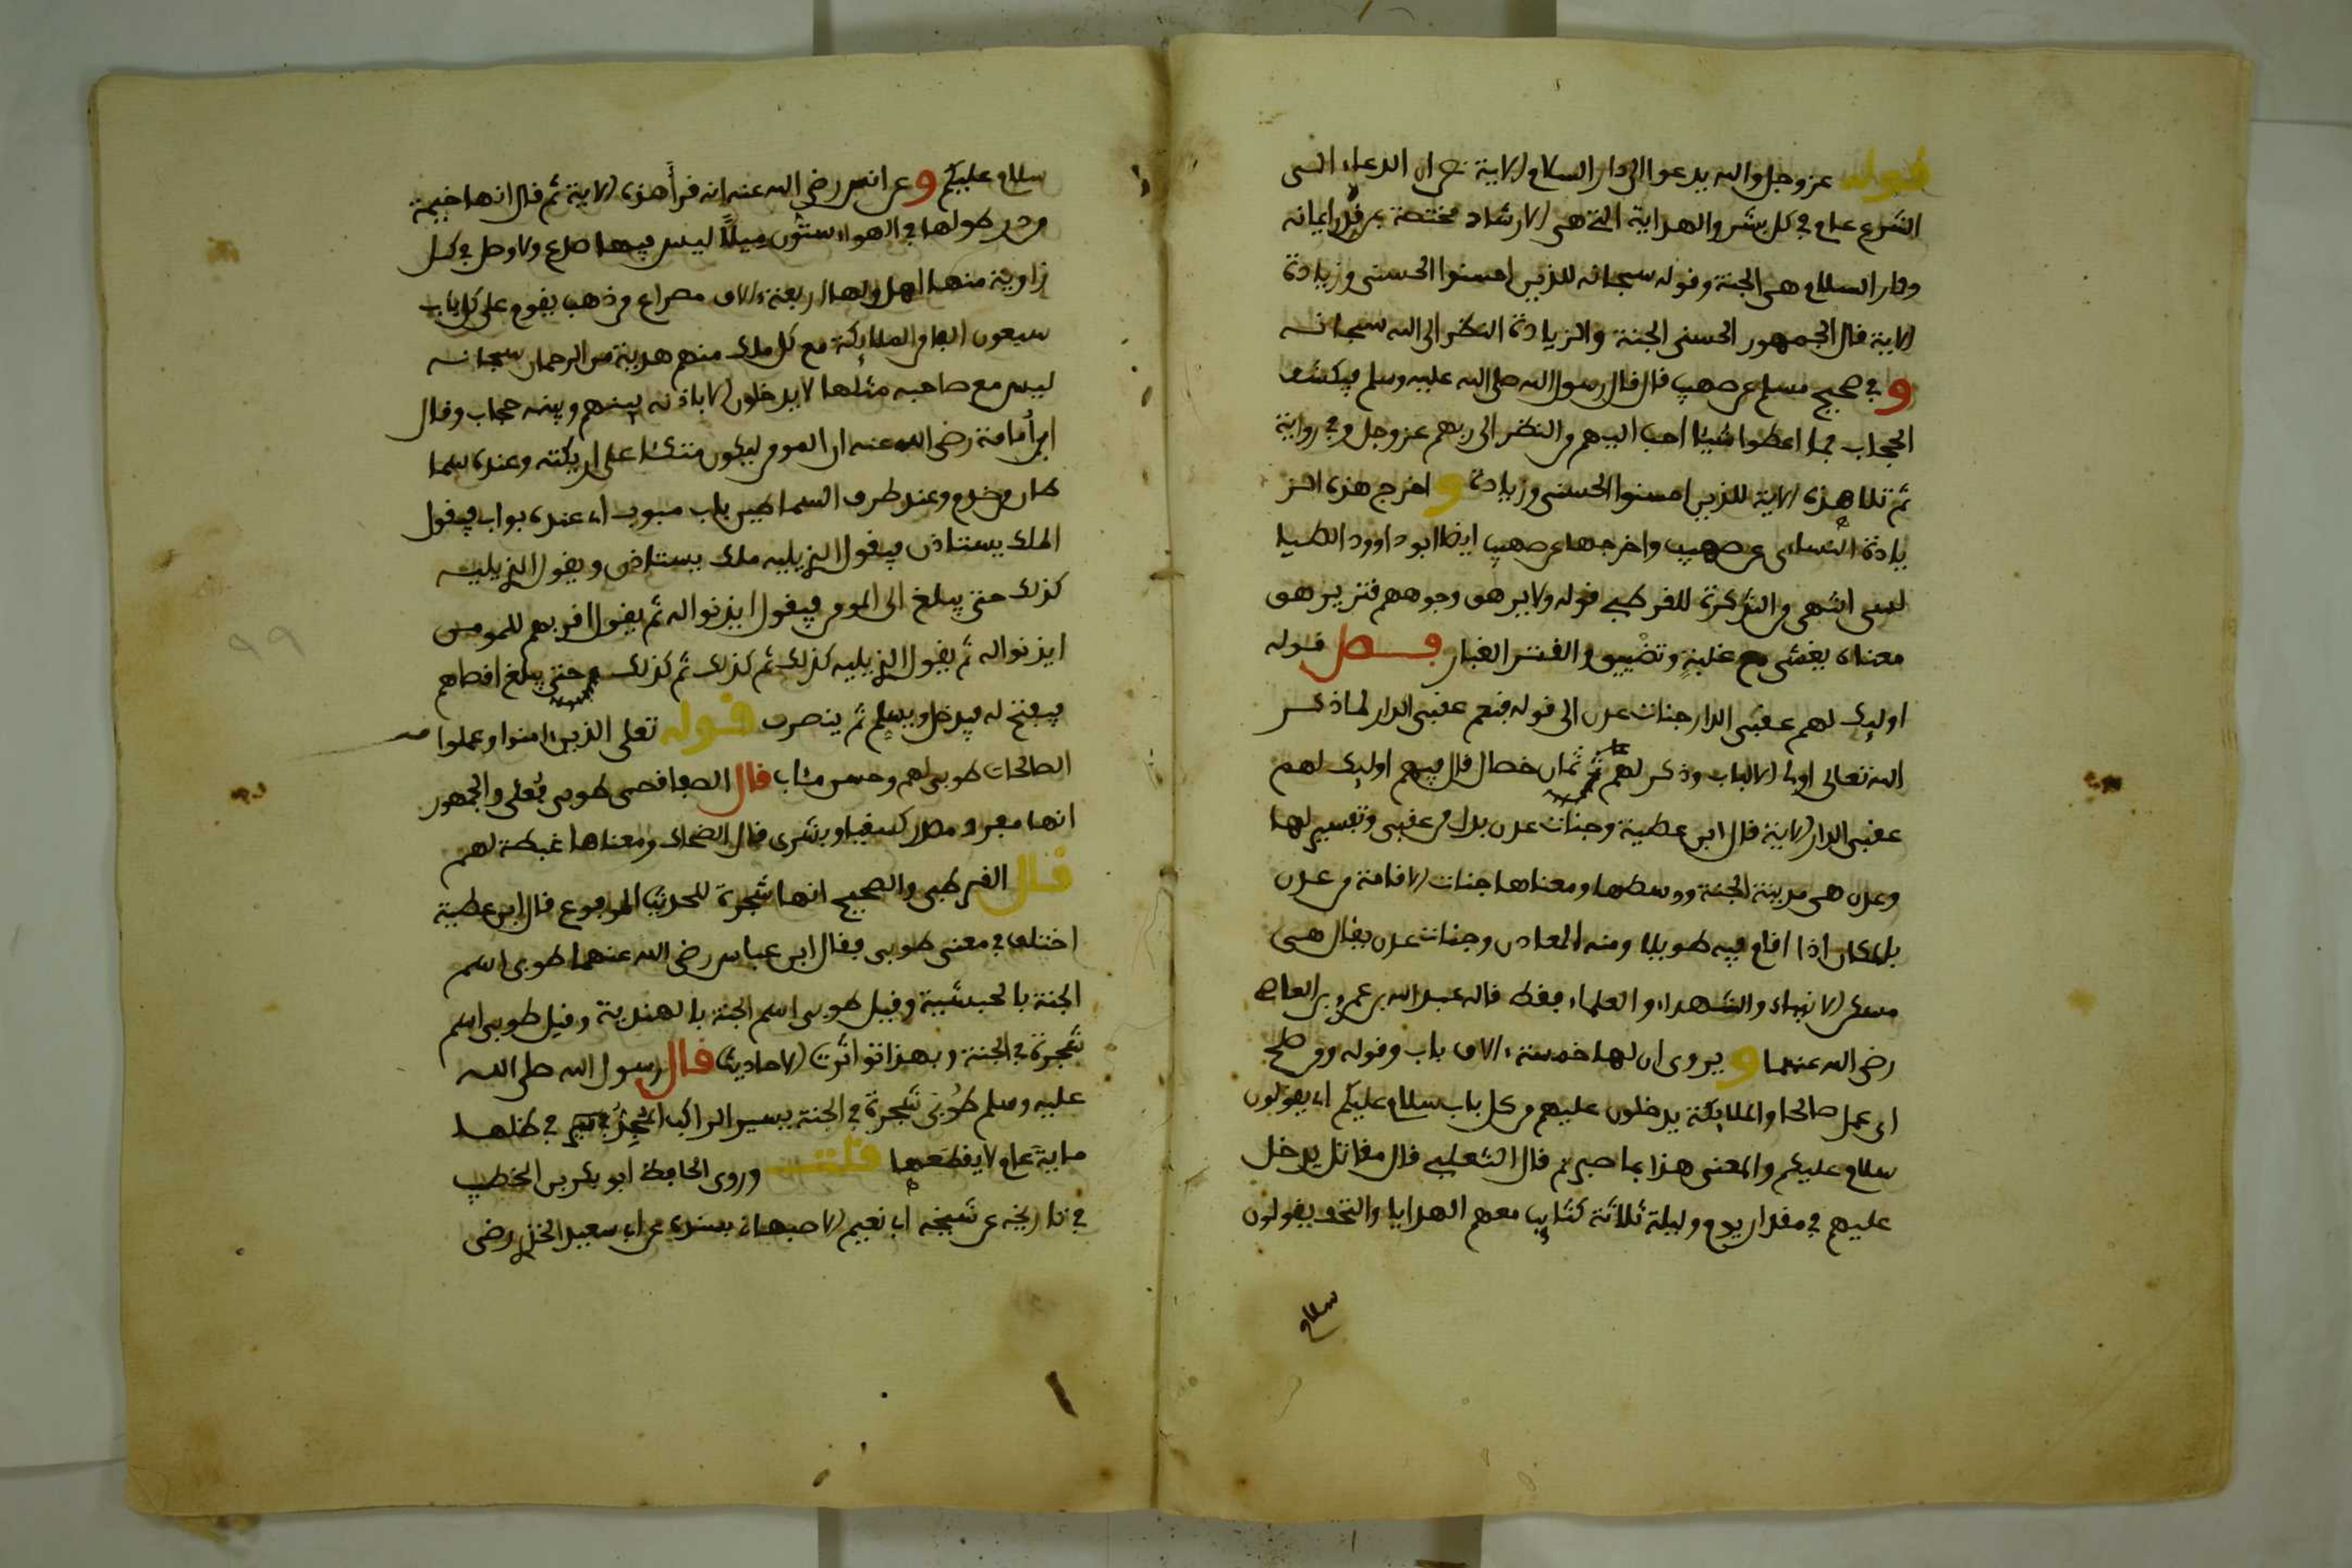 قوله عز وجل والله يدعوا الى دار السلام الاية نص ان الدعاء الى
الشرع عام في كل بشر والهداية التي هي الارشاد مختصة بمن قدر ايمانه
ودار السلام هي الجنة وقوله سبحانه للذين احسنوا الحسنى وزيادة
الاية قال الجمهور الحسنى الجنة والزيادة النظر الى الله سبحانه
و في صحيح مسلم عن صهيب قال قال رسول الله صلى الله عليه وسلم فيكشف
الحجاب فما اعطوا شيئا احب اليهم من النظر الى ربهم عز وجل وفي رواية
ثم تلا هذه الاية للذين احسنوا الحسنى وزيادة و اخرج هذه الز
يادة النساءى عن صهيب واخرجها عن صهيب ايضا ابو داوود الطيا
لسى انتهى من التذكرة للقرطبي قوله ولا يرهق وجوههم قتر يرهق
معناه يغشى مع غلبة وتضييق والقتر الغبار فصل قوله
اوليك لهم عقبى الدار جنات عدن الى قوله فنعم عقبى الدار لما ذكر
الله تعالى اولى الالباب وذكر لهم ثمان خصال قال فيهم اوليك لهم
عقبى الدار الاية قال ابن عطية وجنات عدن بدل من عقبى وتفسير لها
وعدن هي مدينة الجنة ووسطها ومعناها جنات الاقامة من عدن
بالمكان اذا اقام فيه طويلا ومنه المعادن وجنات عدن يقال هى
مسكن الانبياء والشهداء والعلماء فقط قاله عبد الله بن عمرو بن العاص
رضى الله عنهما و يروى ان لها خمسة ءالاف باب وقوله ومن صلح
اى عمل صالحا والملايكة يدخلون عليهم من كل باب سلام عليكم اى يقولون
سلام عليكم والمعنى هذا بما صبرتم قال الثعلبي قال مقاتل يدخل
عليهم في مقدار يوم وليلة ثلاثة كتايب معهم الهدايا والتحف يقولون
سلام
سلام عليكم و عن انس رضي الله عنه انه قرأ هذه الاية ثم قال انها خيمة
من در طولها في الهواء ستون ميلا ليس فيها صدع ولا وصل في كل
زاوية منها اهل ولها اربعة ءالاف مصراع من ذهب يقوم على كل باب
سبعون الفا من الملايكة مع كل ملك منهم هدية من الرحمان سبحانه
ليس مع صاحبه مثلها لا يدخلون الا باذنه بينهم وبينه حجاب وقال
ابو أمامة رضى الله عنه ان المومن ليكون متكئا على اريكته وعنده سما
طان من خدم وعند طرف السماطين باب مبوب اى عنده بواب فيقول
الملك يستاذن فيقول للذي يليه ملك يستاذن ويقول للذي يليه
كذلك حتى يبلغ الى المومن فيقول ايذنوا له ثم يقول اقربهم للمومن
ايذنوا له ثم يقول للذي يليه كذلك ثم كذلك ثم كذلك حتى يبلغ اقصاهم
فيفتح له فيدخل ويسلم ثم ينصرف قوله تعلى الذين ءامنوا وعملوا
الصالحات طوبى لهم وحسن مئاب قال الصفاقصى طوبى فعلى والجمهور
انها مفرد مصدر كسقيا وبشرى قال الضحاك ومعناها غبطة لهم
قال القرطبي والصحيح انها شجرة للحديث المرفوع قال ابن عطية
اختلف في معنى طوبى فقال ابن عباس رضى الله عنهما طوبى اسم
الجنة بالحبشية وقيل طوبى اسم الجنة بالهندية وقيل طوبى اسم
شجرة في الجنة وبهذا تواترت الاحاديث قال رسول الله صلى الله
عليه وسلم طوبى شجرة في الجنة يسير الراكب المجد في ظلها
ماية عام لا يقطعها قلت وروى الحافظ ابو بكر بن الخطيب
في تاريخه عن شيخه ابى نعيم الاصبهانى بسنده عن ابى سعيد الخدري رضى